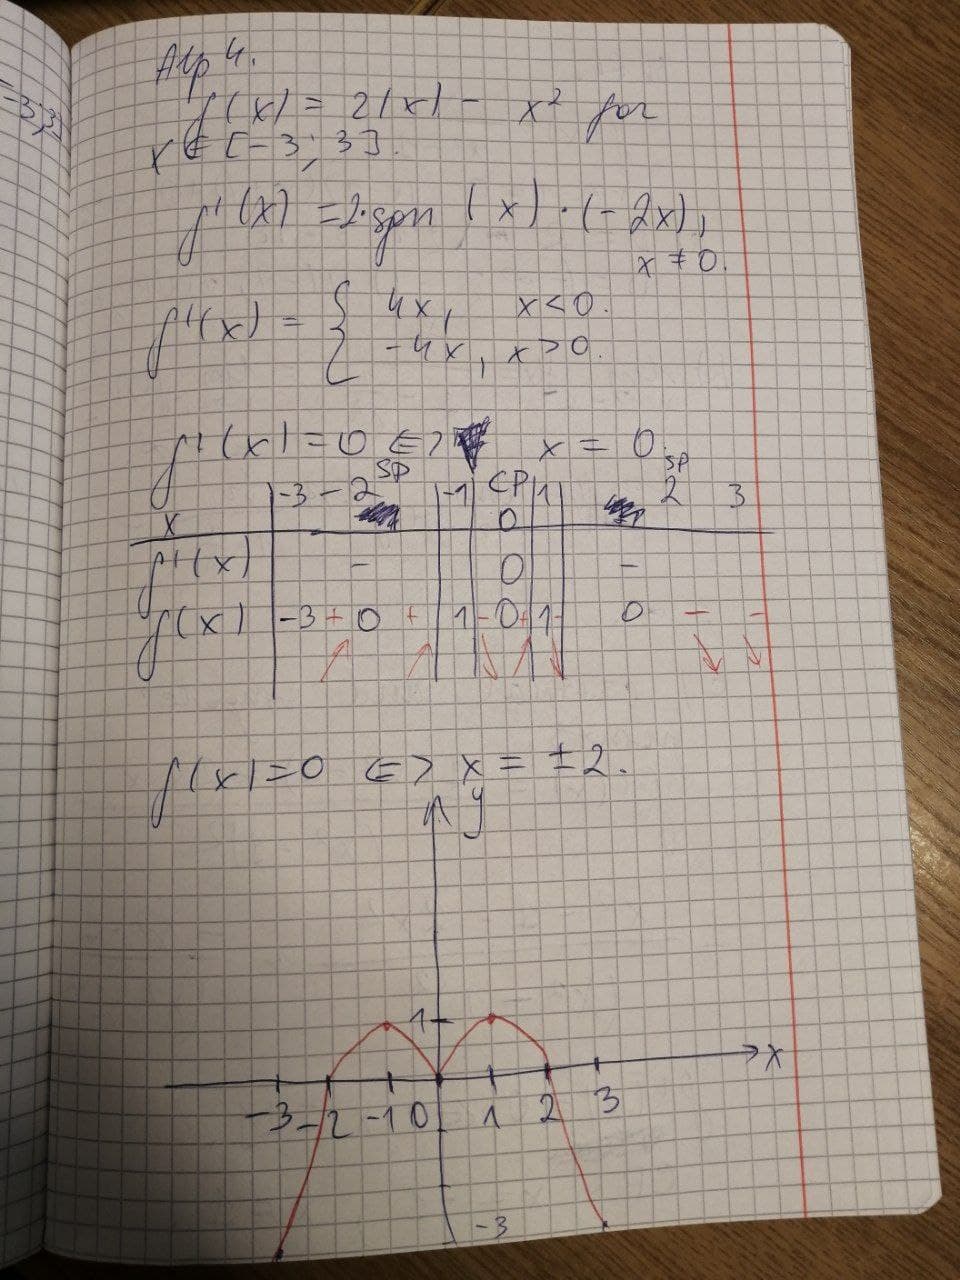 -3;3]
Alp 4.
f(x) = 2|x| - x² for
x ∈ [-3; 3].
f'(x) = 2·sgn (x) · (-2x),
x ≠ 0.
f'(x) = { 4x, x < 0.
-4x, x > 0.
f'(x) = 0 <=> x = 0.
SP SP
x -3 -2 -1 CP 0 1 2 3
f'(x) - 0 -
f(x) -3 + 0 + 1 - 0 + 1 - 0 - -
f(x) = 0 <=> x = ±2.
y
1
x
-3 -2 -1 0 1 2 3
-3